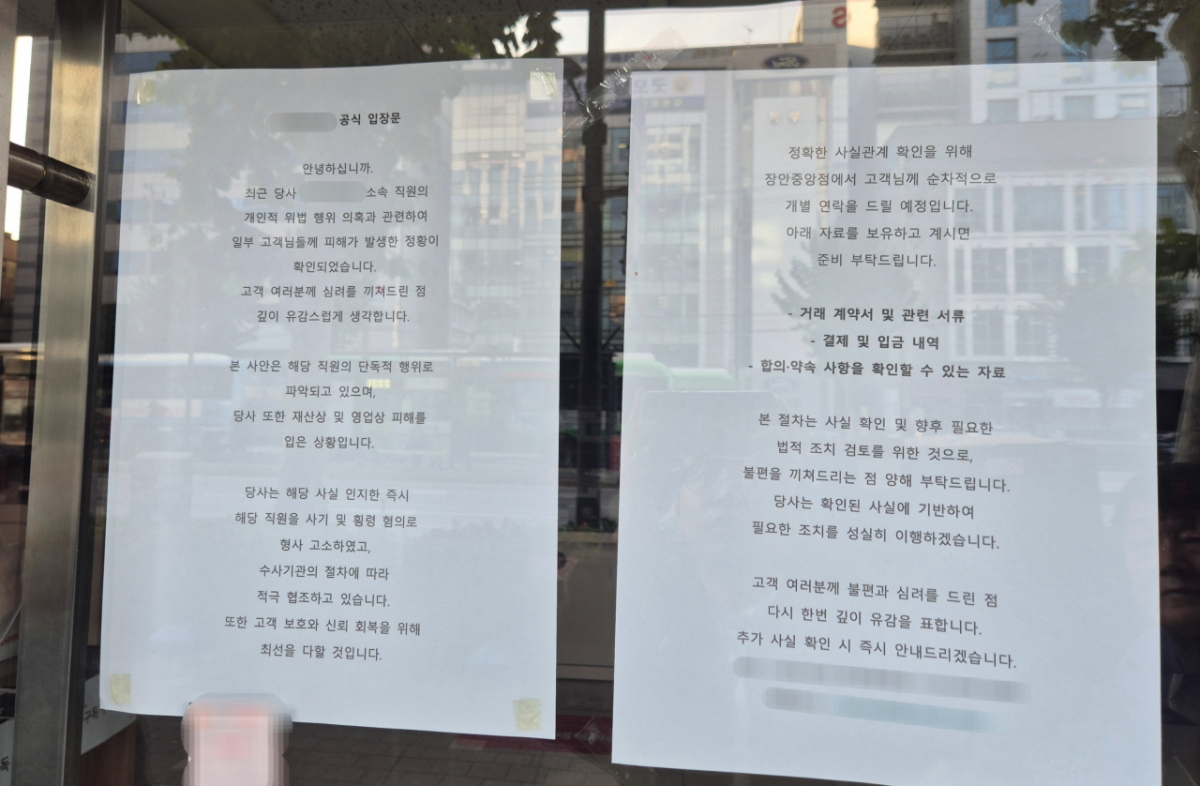 공식 입장문
안녕하십니까.
최근 당사 소속 직원의
개인적 위법 행위 의혹과 관련하여
일부 고객님들께 피해가 발생한 정황이
확인되었습니다.
고객 여러분께 심려를 끼쳐드린 점
깊이 유감스럽게 생각합니다.
본 사안은 해당 직원의 단독적 행위로
파악되고 있으며,
당사 또한 재산상 및 영업상 피해를
입은 상황입니다.
당사는 해당 사실 인지한 즉시
해당 직원을 사기 및 횡령 혐의로
형사 고소하였고,
수사기관의 절차에 따라
적극 협조하고 있습니다.
또한 고객 보호와 신뢰 회복을 위해
최선을 다할 것입니다.
정확한 사실관계 확인을 위해
장안중앙점에서 고객님께 순차적으로
개별 연락을 드릴 예정입니다.
아래 자료를 보유하고 계시면
준비 부탁드립니다.
- 거래 계약서 및 관련 서류
- 결제 및 입금 내역
- 합의·약속 사항을 확인할 수 있는 자료
본 절차는 사실 확인 및 향후 필요한
법적 조치 검토를 위한 것으로,
불편을 끼쳐드리는 점 양해 부탁드립니다.
당사는 확인된 사실에 기반하여
필요한 조치를 성실히 이행하겠습니다.
고객 여러분께 불편과 심려를 드린 점
다시 한번 깊이 유감을 표합니다.
추가 사실 확인 시 즉시 안내드리겠습니다.